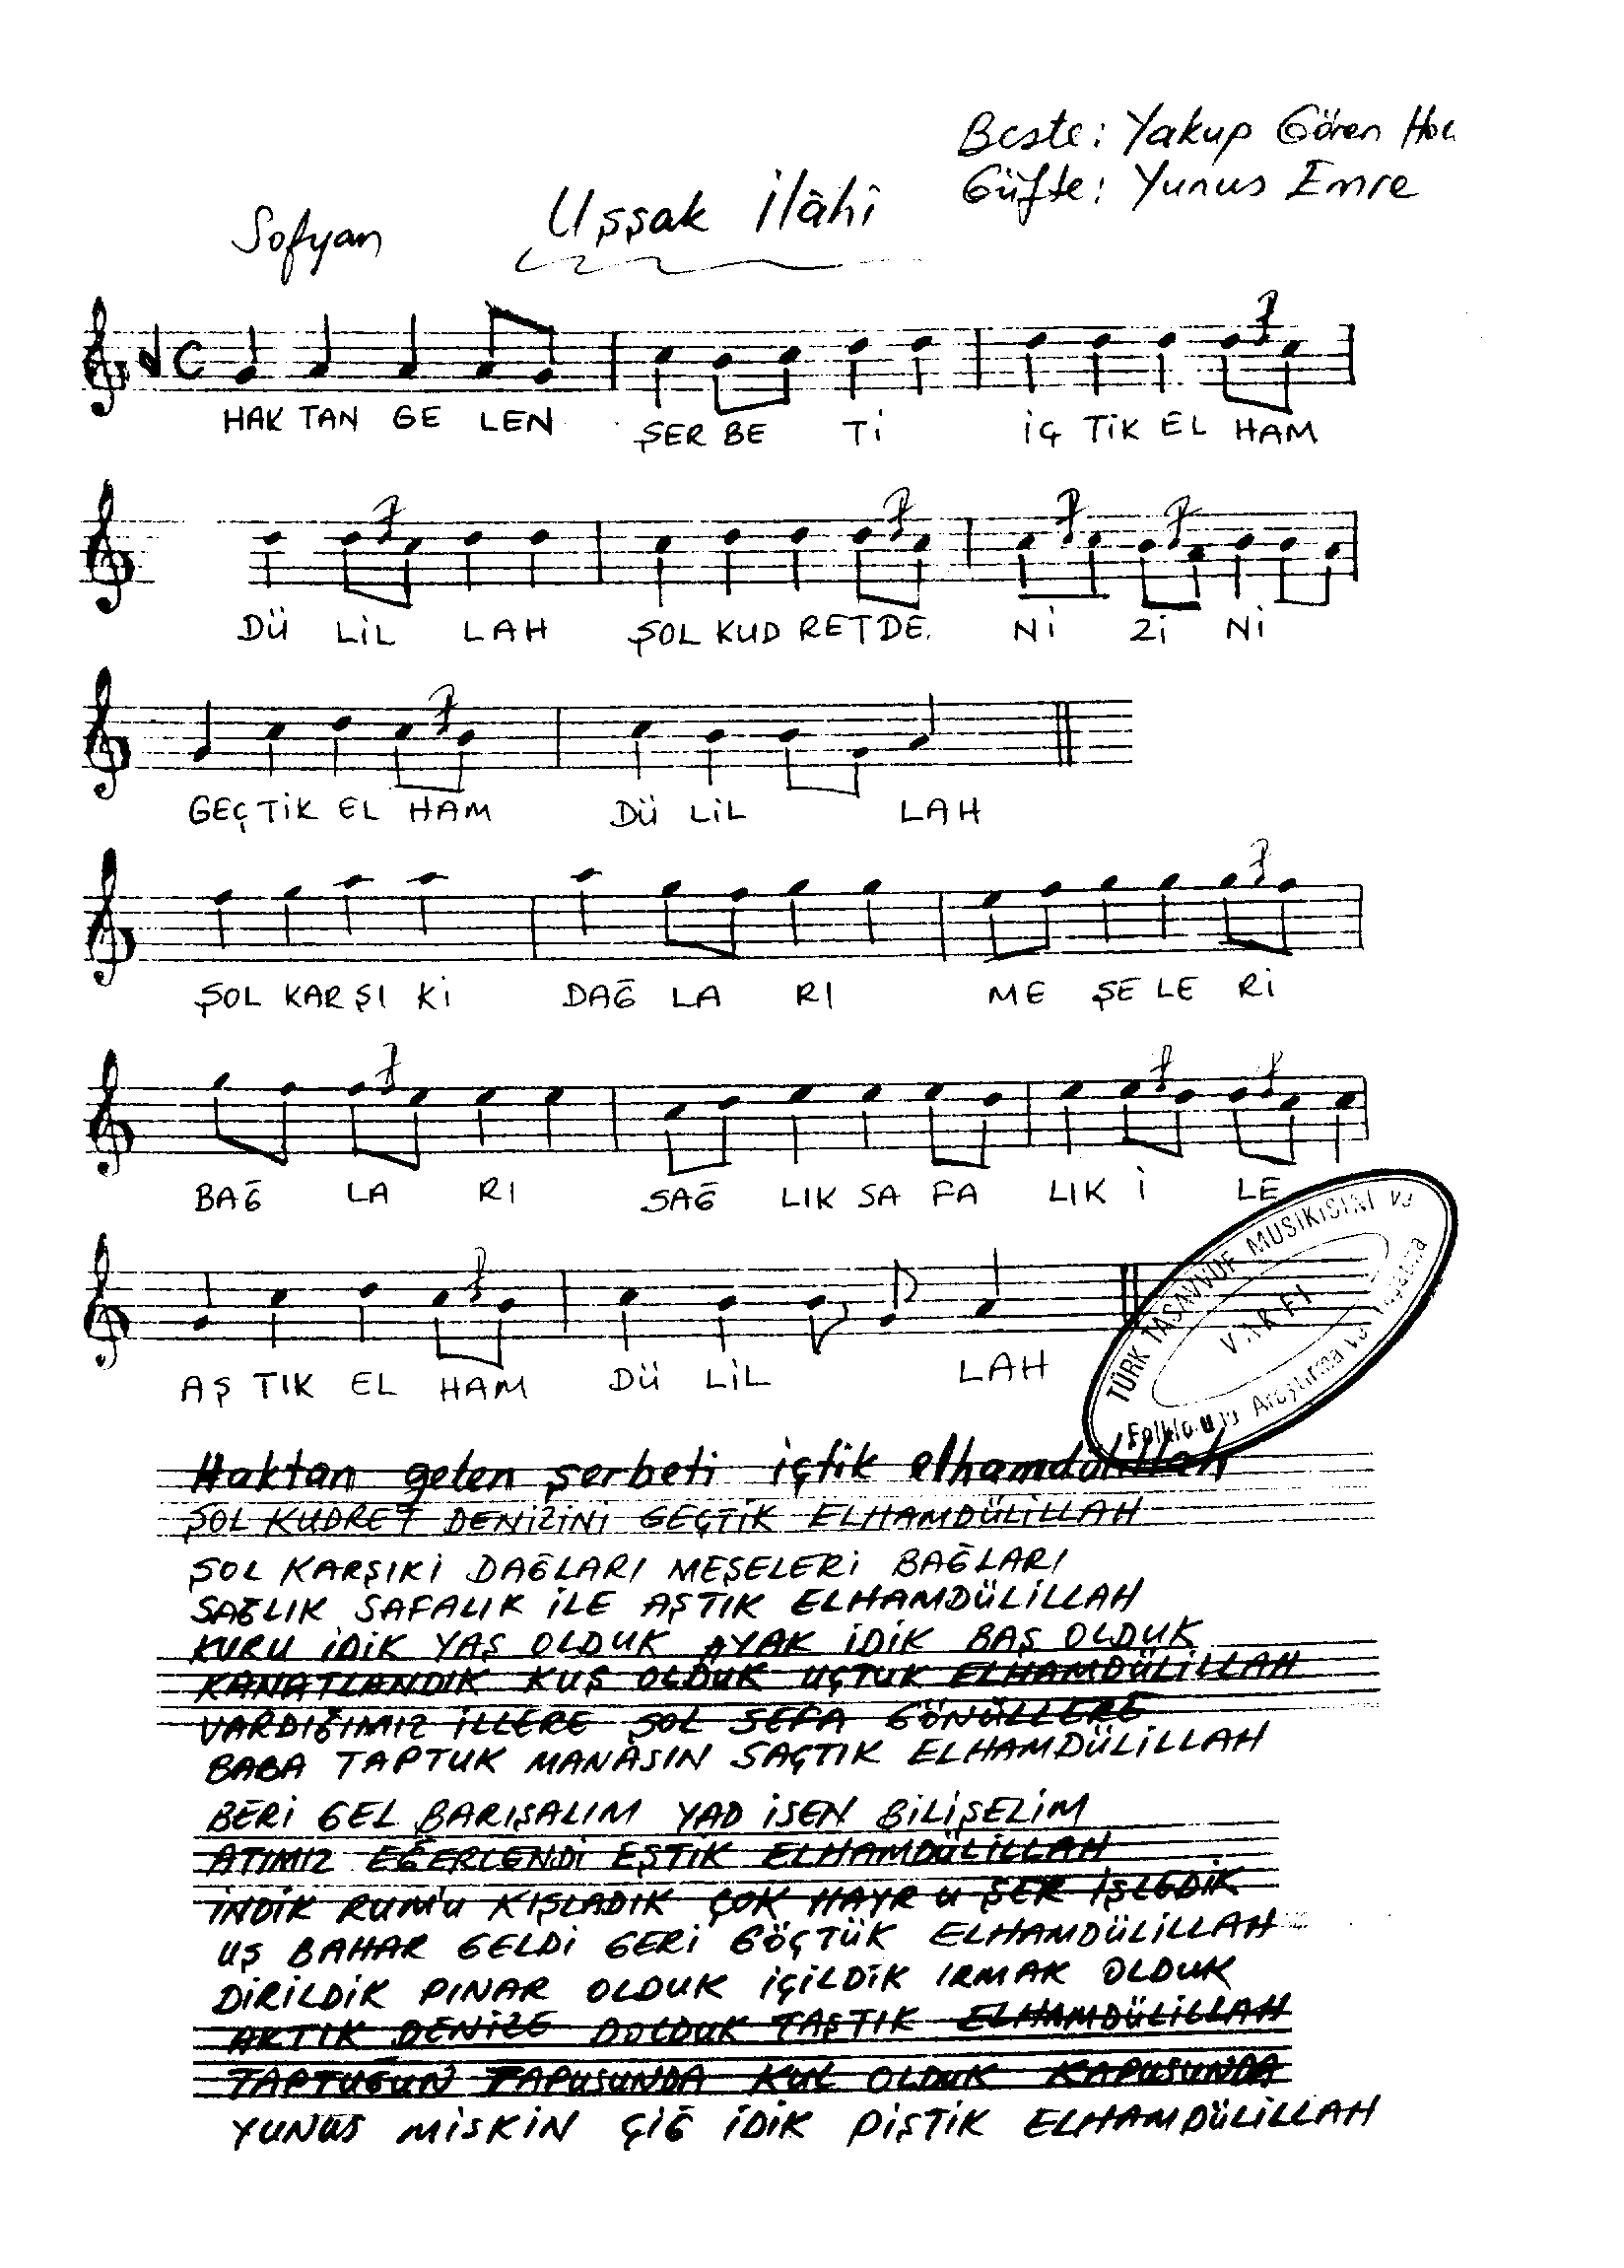 Beste: Yakup Gören Hoc
Güfte: Yunus Emre
Sofyan
Uşşak İlâhî
HAK TAN GE LEN ŞER BE Tİ İÇ TİK EL HAM
DÜ LİL LAH ŞOL KUD RET DE Nİ Zİ Nİ
GEÇ TİK EL HAM DÜ LİL LAH
ŞOL KAR ŞI Kİ DAĞ LA RI ME ŞE LE Rİ
BAĞ LA RI SAĞ LIK SA FA LIK İ LE
AŞ TIK EL HAM DÜ LİL LAH
TÜRK TASAVVUF MUSIKISINI ve
VAKFI
Folklorunu Araştırma ve Yaşatma
Haktan gelen şerbeti içtik elhamdülillah
ŞOL KUDRET DENİZİNİ GEÇTİK ELHAMDÜLİLLAH
ŞOL KARŞIKİ DAĞLARI MEŞELERİ BAĞLARI
SAĞLIK SAFALIK İLE AŞTIK ELHAMDÜLİLLAH
KURU İDİK YAŞ OLDUK AYAK İDİK BAŞ OLDUK
KANATLANDIK KUŞ OLDUK UÇTUK ELHAMDÜLİLLAH
VARDIĞIMIZ İLLERE ŞOL SEFA GÖNÜLLERE
BABA TAPTUK MANÂSIN SAÇTIK ELHAMDÜLİLLAH
BERİ GEL BARIŞALIM YAD İSEN BİLİŞELİM
ATIMIZ EĞERLENDİ EŞTİK ELHAMDÜLİLLAH
İNDİK RUM'U KIŞLADIK ÇOK HAYR U ŞER İŞLEDİK
UŞ BAHAR GELDİ GERİ GÖÇTÜK ELHAMDÜLİLLAH
DİRİLDİK PINAR OLDUK İÇİLDİK IRMAK OLDUK
AKTIK DENİZE DOLDUK TAŞTIK ELHAMDÜLİLLAH
TAPTUĞUN TAPUSUNDA KUL OLDUK KAPUSUNDA
YUNUS MİSKİN ÇİĞ İDİK PİŞTİK ELHAMDÜLİLLAH